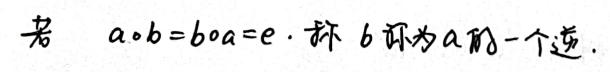 若 a∘b=b∘a=e. 称 b 称为 a 的一个逆.